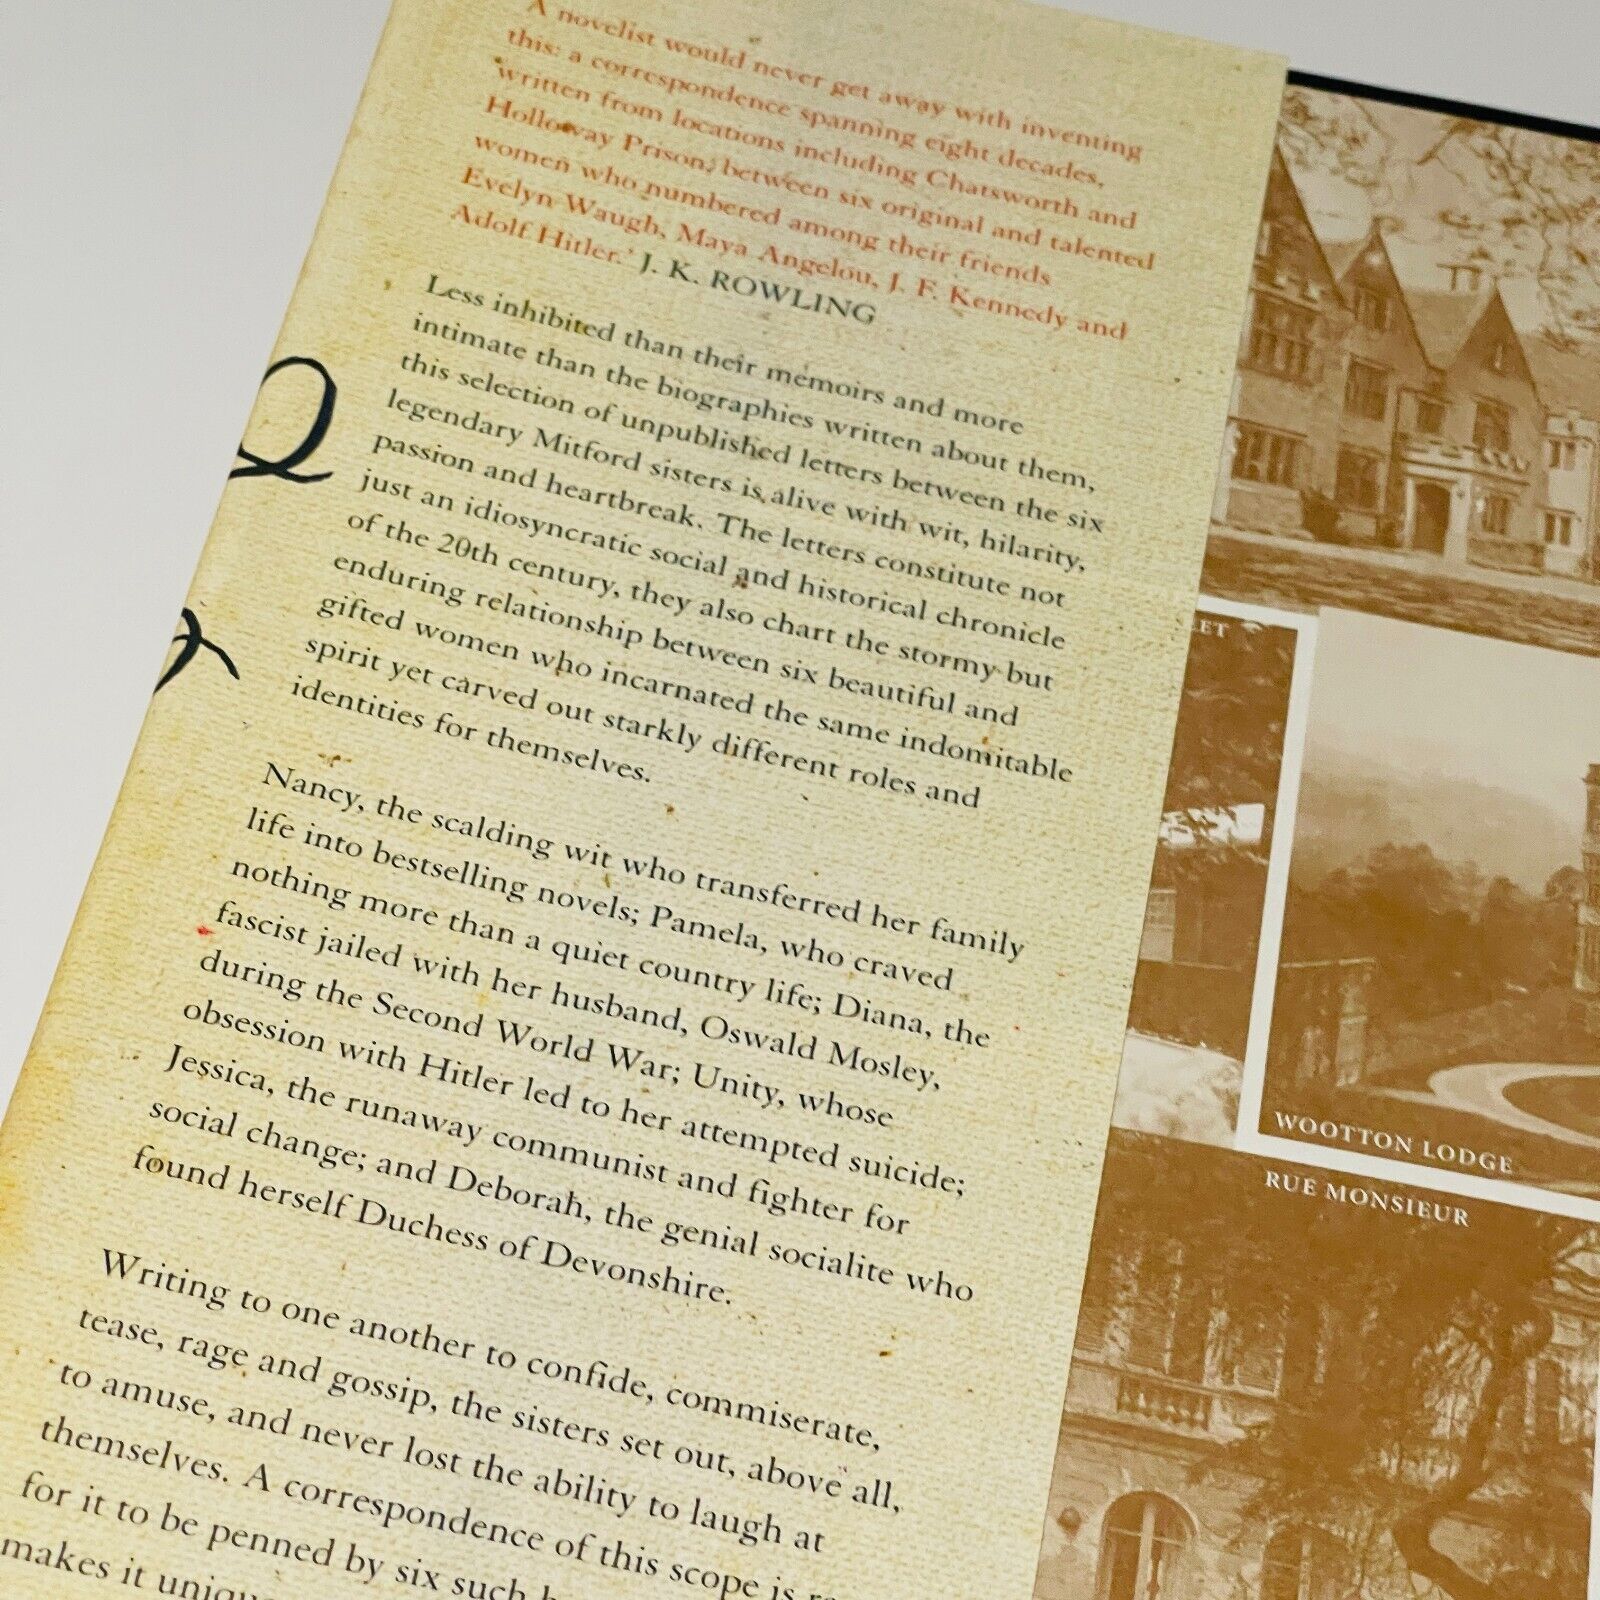 A novelist would never get away with inventing
this: a correspondence spanning eight decades,
written from locations including Chatsworth and
Holloway Prison, between six original and talented
women who numbered among their friends
Evelyn Waugh, Maya Angelou, J. F. Kennedy and
Adolf Hitler.' J. K. ROWLING
Less inhibited than their memoirs and more
intimate than the biographies written about them,
this selection of unpublished letters between the six
legendary Mitford sisters is alive with wit, hilarity,
passion and heartbreak. The letters constitute not
just an idiosyncratic social and historical chronicle
of the 20th century, they also chart the stormy but
enduring relationship between six beautiful and
gifted women who incarnated the same indomitable
spirit yet carved out starkly different roles and
identities for themselves.
Nancy, the scalding wit who transferred her family
life into bestselling novels; Pamela, who craved
nothing more than a quiet country life; Diana, the
fascist jailed with her husband, Oswald Mosley,
during the Second World War; Unity, whose
obsession with Hitler led to her attempted suicide;
Jessica, the runaway communist and fighter for
social change; and Deborah, the genial socialite who
found herself Duchess of Devonshire.
Writing to one another to confide, commiserate,
tease, rage and gossip, the sisters set out, above all,
to amuse, and never lost the ability to laugh at
themselves. A correspondence of this scope is
for it to be penned by six such
makes it
WOOTTON LODGE
RUE MONSIEUR